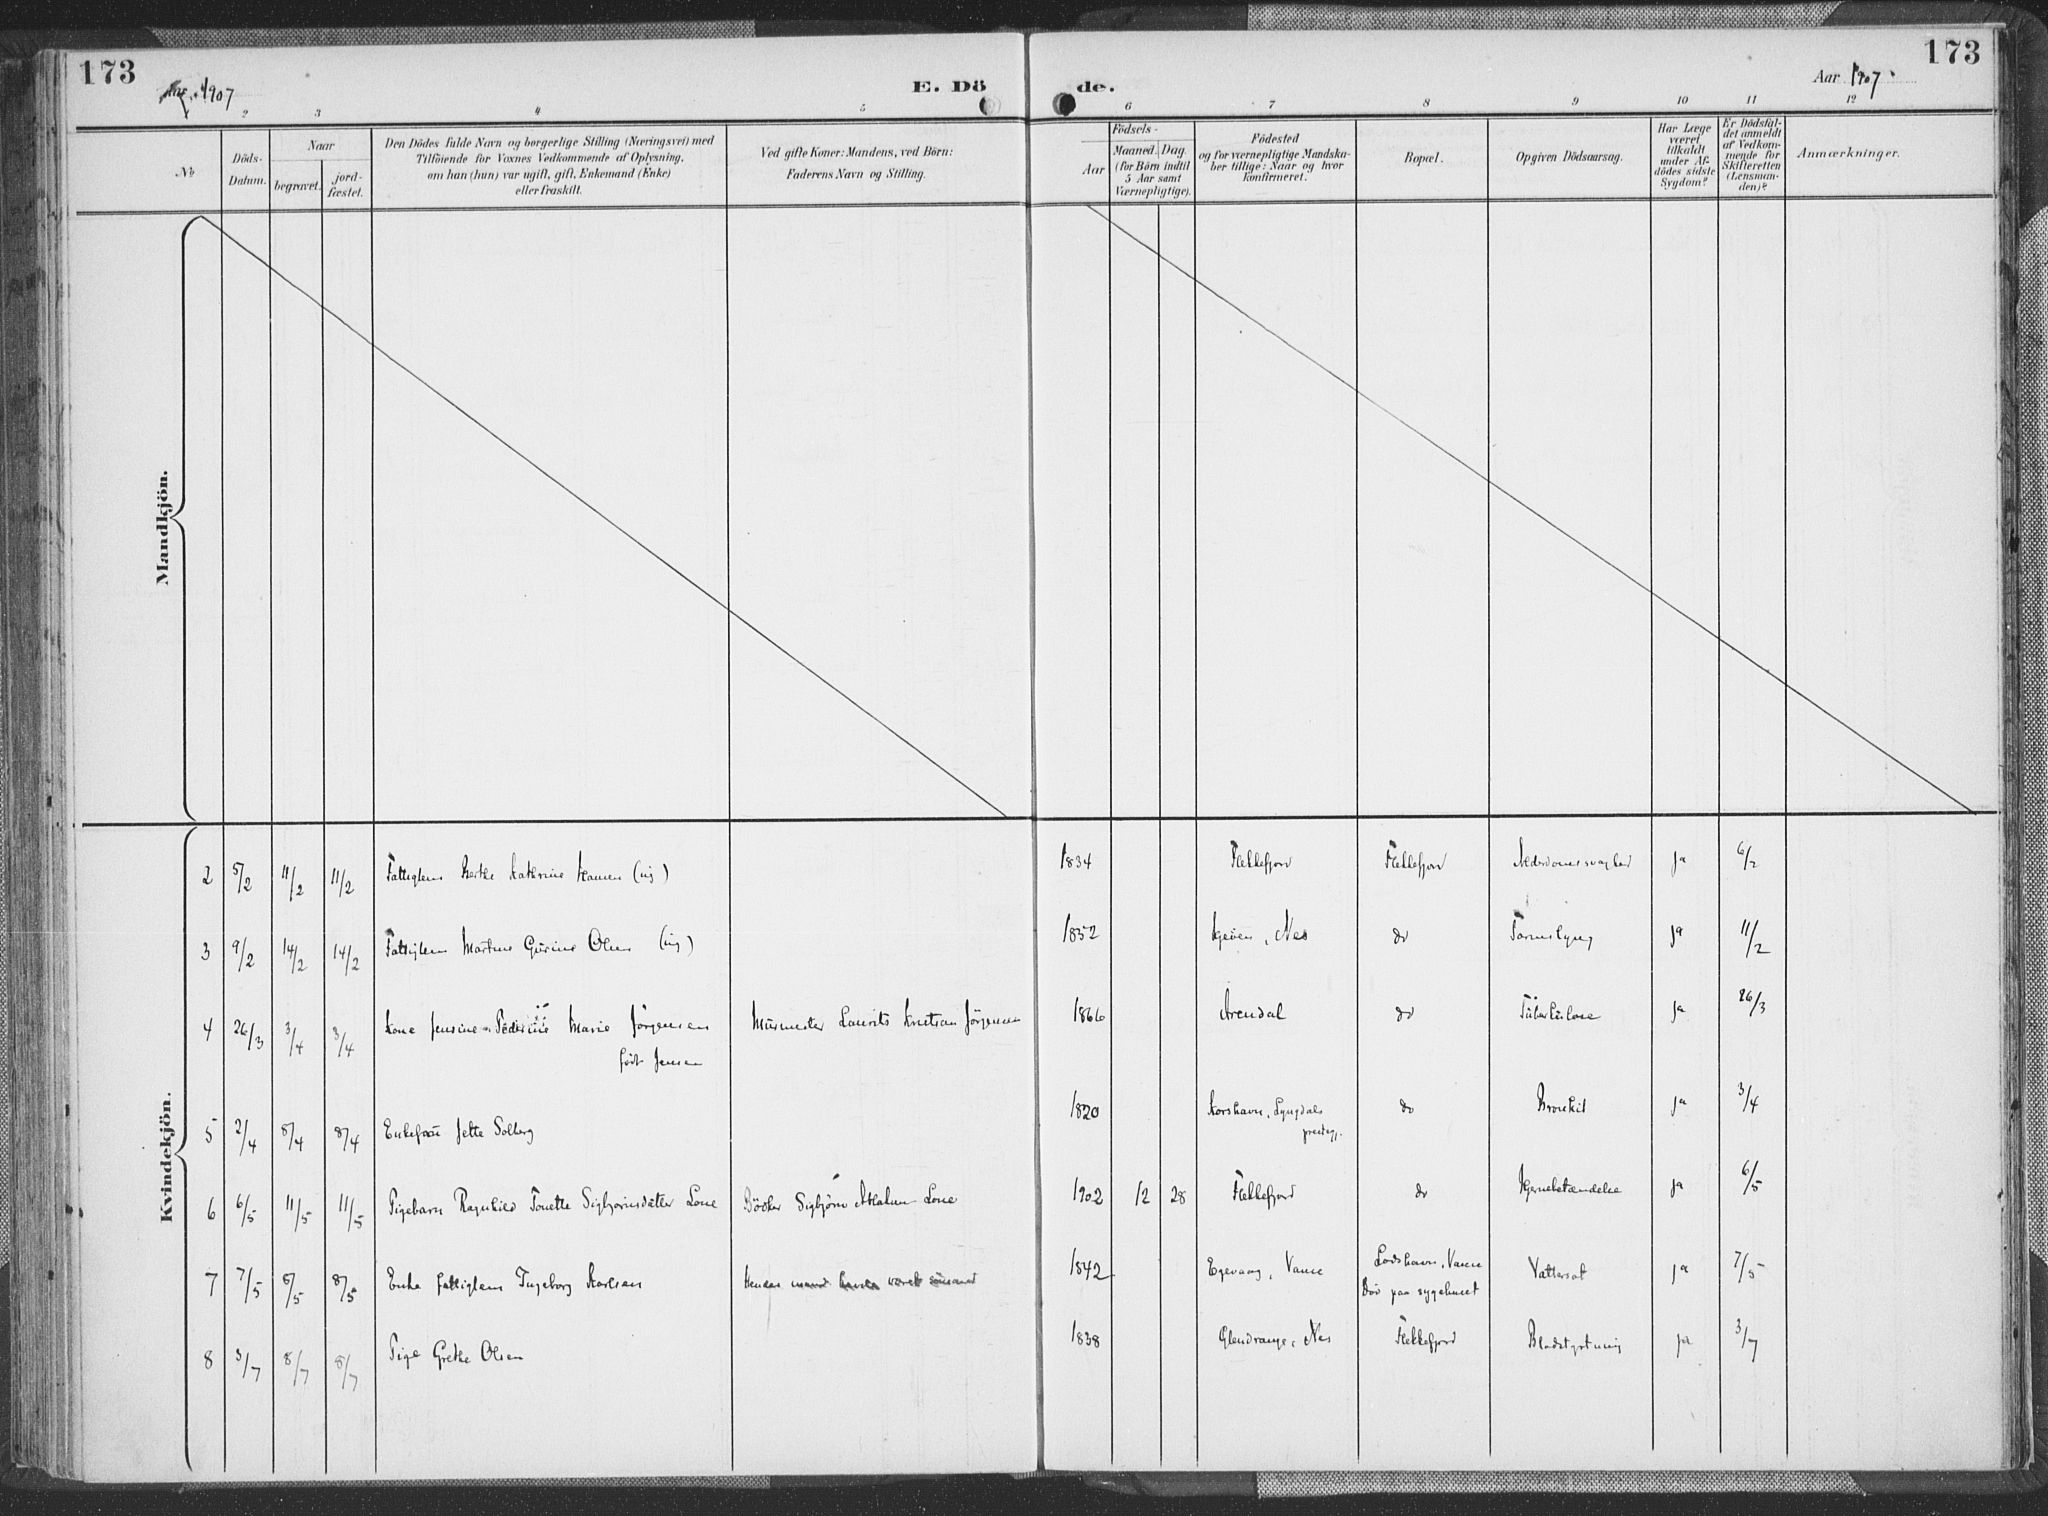 173
Aar 1907
E. Dö
de.
Aar 1907.
173
1 2 3 4 5 6 7 8 9 10 11 12
№
Döds-
Datum.
Naar
begravet.
jord-
fæstet.
Den Dödes fulde Navn og borgerlige Stilling (Næringsvei) med
Tilföiende for Voxnes Vedkommende af Oplysning,
om han (hun) var ugift, gift, Enkemand (Enke)
eller fraskilt.
Ved gifte Koner: Mandens, ved Börn:
Faderens Navn og Stilling.
Födsels-
Aar
Maaned. Dag.
(for Börn indtil
5 Aar samt
Værnepligtige).
Födested
og for værnepligtige Mandska-
ber tillige: Naar og hvor
konfirmeret.
Bopæl.
Opgiven Dödsaarsag.
Har Læge
været
tilkaldt
under Af-
dödes sidste
Sygdom?
Er Dödsfal-
det anmeldt
af Vedkom-
mende for
Skifteretten
(Lensman-
den)?
Anmærkninger.
Mandkjön.
Kvindekjön.
2 5/2 11/2 11/2 Fattiglem Berthe Kathrine Hansen (ug) 1834 Flekkefjord Flekkefjord Alderdomssvaghed ja 6/2
3 9/2 14/2 14/2 Fattiglem Martine Gurine Olsen (ug) 1852 Nes do Tarmslyng ja 11/2
4 26/3 3/4 3/4 Kone Jensine Marie Jörgensen Murmester Laurits Kristian Jörgensen 1866 Arendal do Tuberkulose ja 26/3
født Jensen
5 2/4 8/4 8/4 Enkefru Jette Solberg 1820 Korshavn, Lyngdals do Bronkit ja 3/4
prestegj.
6 6/5 11/5 11/5 Pigebarn Ragnhild Tonette Sigbjörnsdatter Lone Bödker Sigbjörn Lone 1902 12 28 Flekkefjord do Hjernebetændelse ja 6/5
7 7/5 8/5 8/5 Enke fattiglem Ingeborg Karlsen Hendes mand havde været sömand 1842 Egevaag, Vanse Lodshavn, Vanse Vattersot ja 7/5
Död paa sygehuset
8 3/7 8/7 8/7 Pige Grethe Olsen 1838 Glendrange, Nes Flekkefjord Blodstyrtning ja 3/7